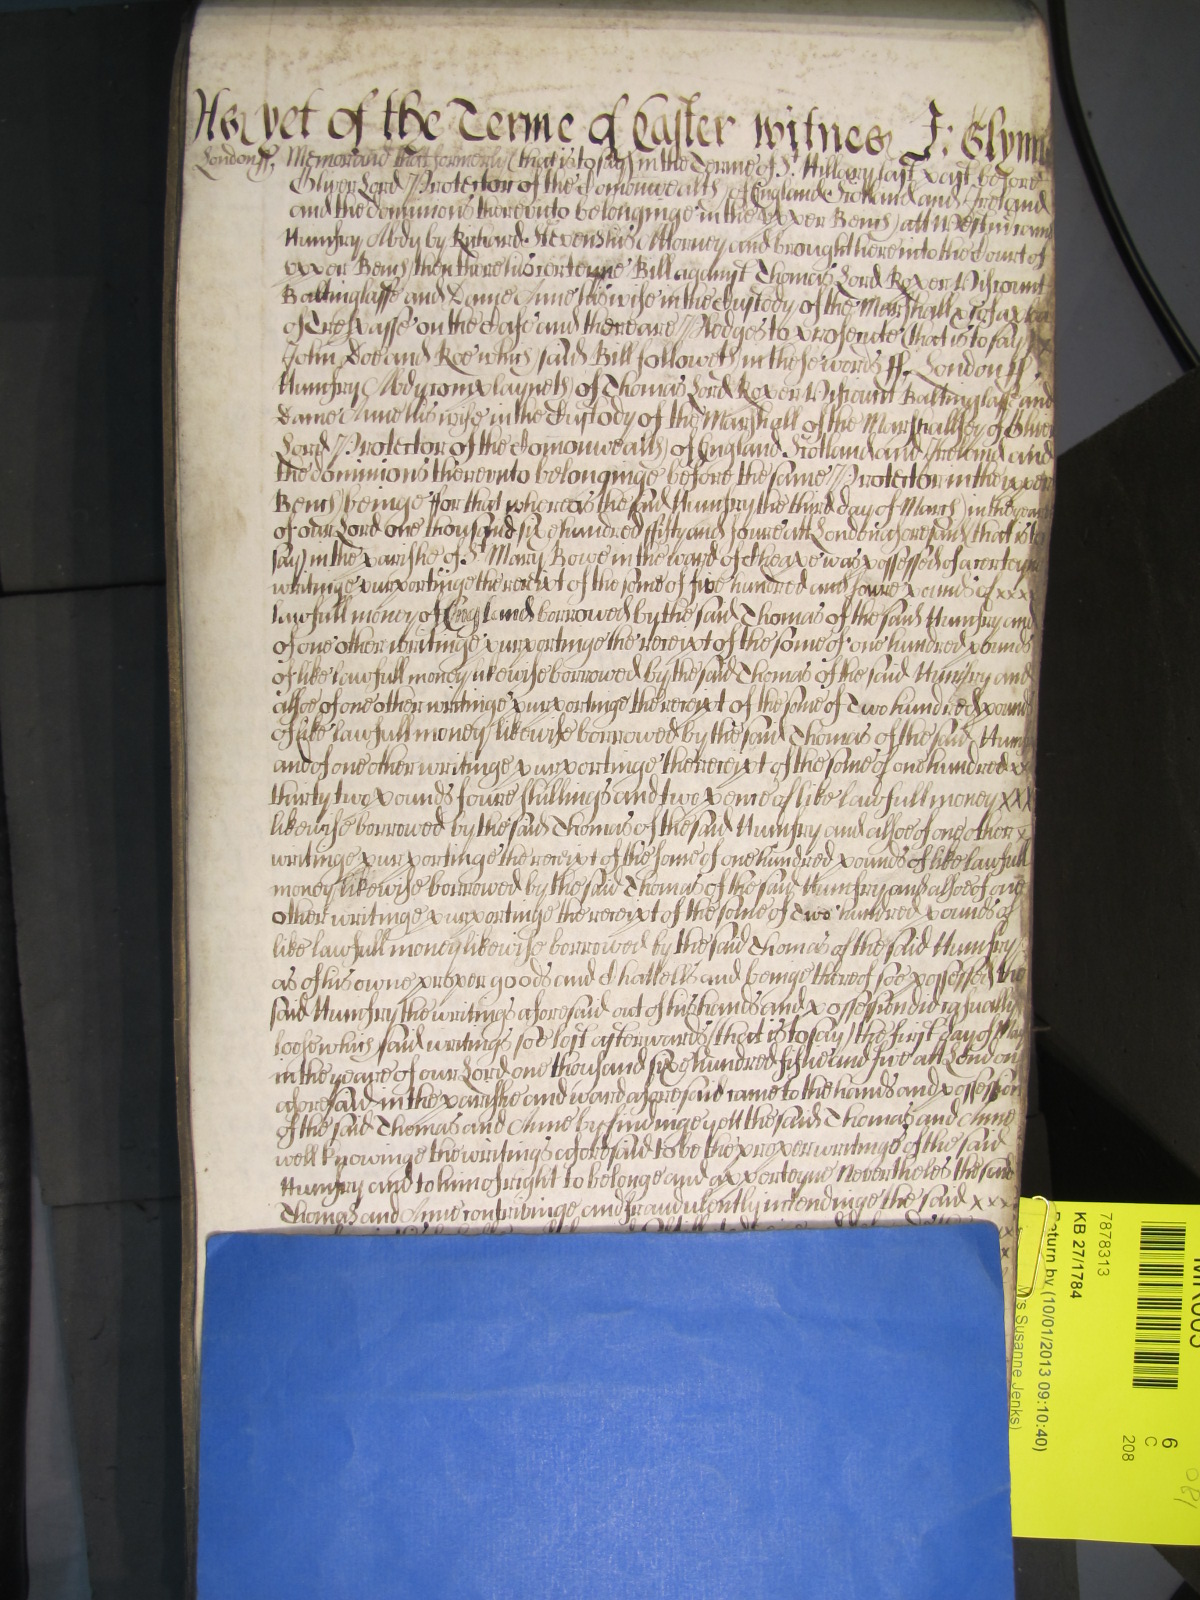 As yet of the Terme of Easter witnes J: Glynn
London ss. Memorand that formerly (that is to say) in the Terme of St Hillary last past before
Oliver Lord Protector of the Comonwealth of England Scotland and Ireland
and the dominions thereunto belonginge in the upper Bench att Westm came
Humfry Mody by Richard Stevens his Attorney and brought here into the Court of
upper Bench then there his certeyne Bill against Thomas Lord Roper Viscount
Baltinglasse and Dame Anne his wife in the Custody of the Marshall &c of a plea
of Trespasse on the Case and there are Pledges to prosecute (that is to say) x
John Doe and Roe which said Bill followeth in these words ss. London ss.
Humfry Mody complayneth of Thomas Lord Roper Viscount Baltinglasse and
Dame Anne his wife in the Custody of the Marshall of the Marshallsey of Oliver
Lord Protector of the Comonwealth of England Scotland and Ireland and
the dominions thereunto belonginge before the same Protector in the upper
Bench beinge ffor that whereas the said Humfry the third day of March in the yeare
of our Lord one thousand six hundred ffifty and foure att London aforesaid (that is to
say) in the parishe of St Mary Bowe in the ward of Cheape was possessed of a certeyne
writinge purportinge the receipt of the some of five hundred and foure pounds of xxx
lawfull money of England borrowed by the said Thomas of the said Humfry and
of one other writinge purportinge the receipt of the some of one hundred pounds
of like lawfull money likewise borrowed by the said Thomas of the said Humfry and
alsoe of one other writinge purportinge the receipt of the some of Two hundred pounds
of like lawfull money likewise borrowed by the said Thomas of the said Humfry
and of one other writinge purportinge the receipt of the some of one hundred xx
thirty two pounds foure shillings and two pence of like lawfull money xxx
likewise borrowed by the said Thomas of the said Humfry and alsoe of one other x
writinge purportinge the receipt of the some of one hundred pounds of like lawfull
money likewise borrowed by the said Thomas of the said Humfry and alsoe of one
other writinge purportinge the receipt of the some of Two hundred pounds of
like lawfull money likewise borrowed by the said Thomas of the said Humfry
as of his owne proper goods and Chattells and beinge thereof soe possessed the
said Humfry the writings aforesaid out of his hands and possession did casually
loose which said writings soe lost afterwards (that is to say) the first day of May
in the yeare of our Lord one thousand six hundred fiftie and five att London
aforesaid in the parishe and ward aforesaid came to the hands and possession
of the said Thomas and Anne by findinge yett the said Thomas and Anne
well knowinge the writings aforesaid to be the proper writings of the said
Humfry and to him of right to belonge and apperteyne Nevertheles the said
Thomas and Anne contrivinge and fraudulently intendinge the said xxx
7878313
KB 27/1784
Return by (10/01/2013 09:10:40)
Ms Susanne Jenks)
6
C
208